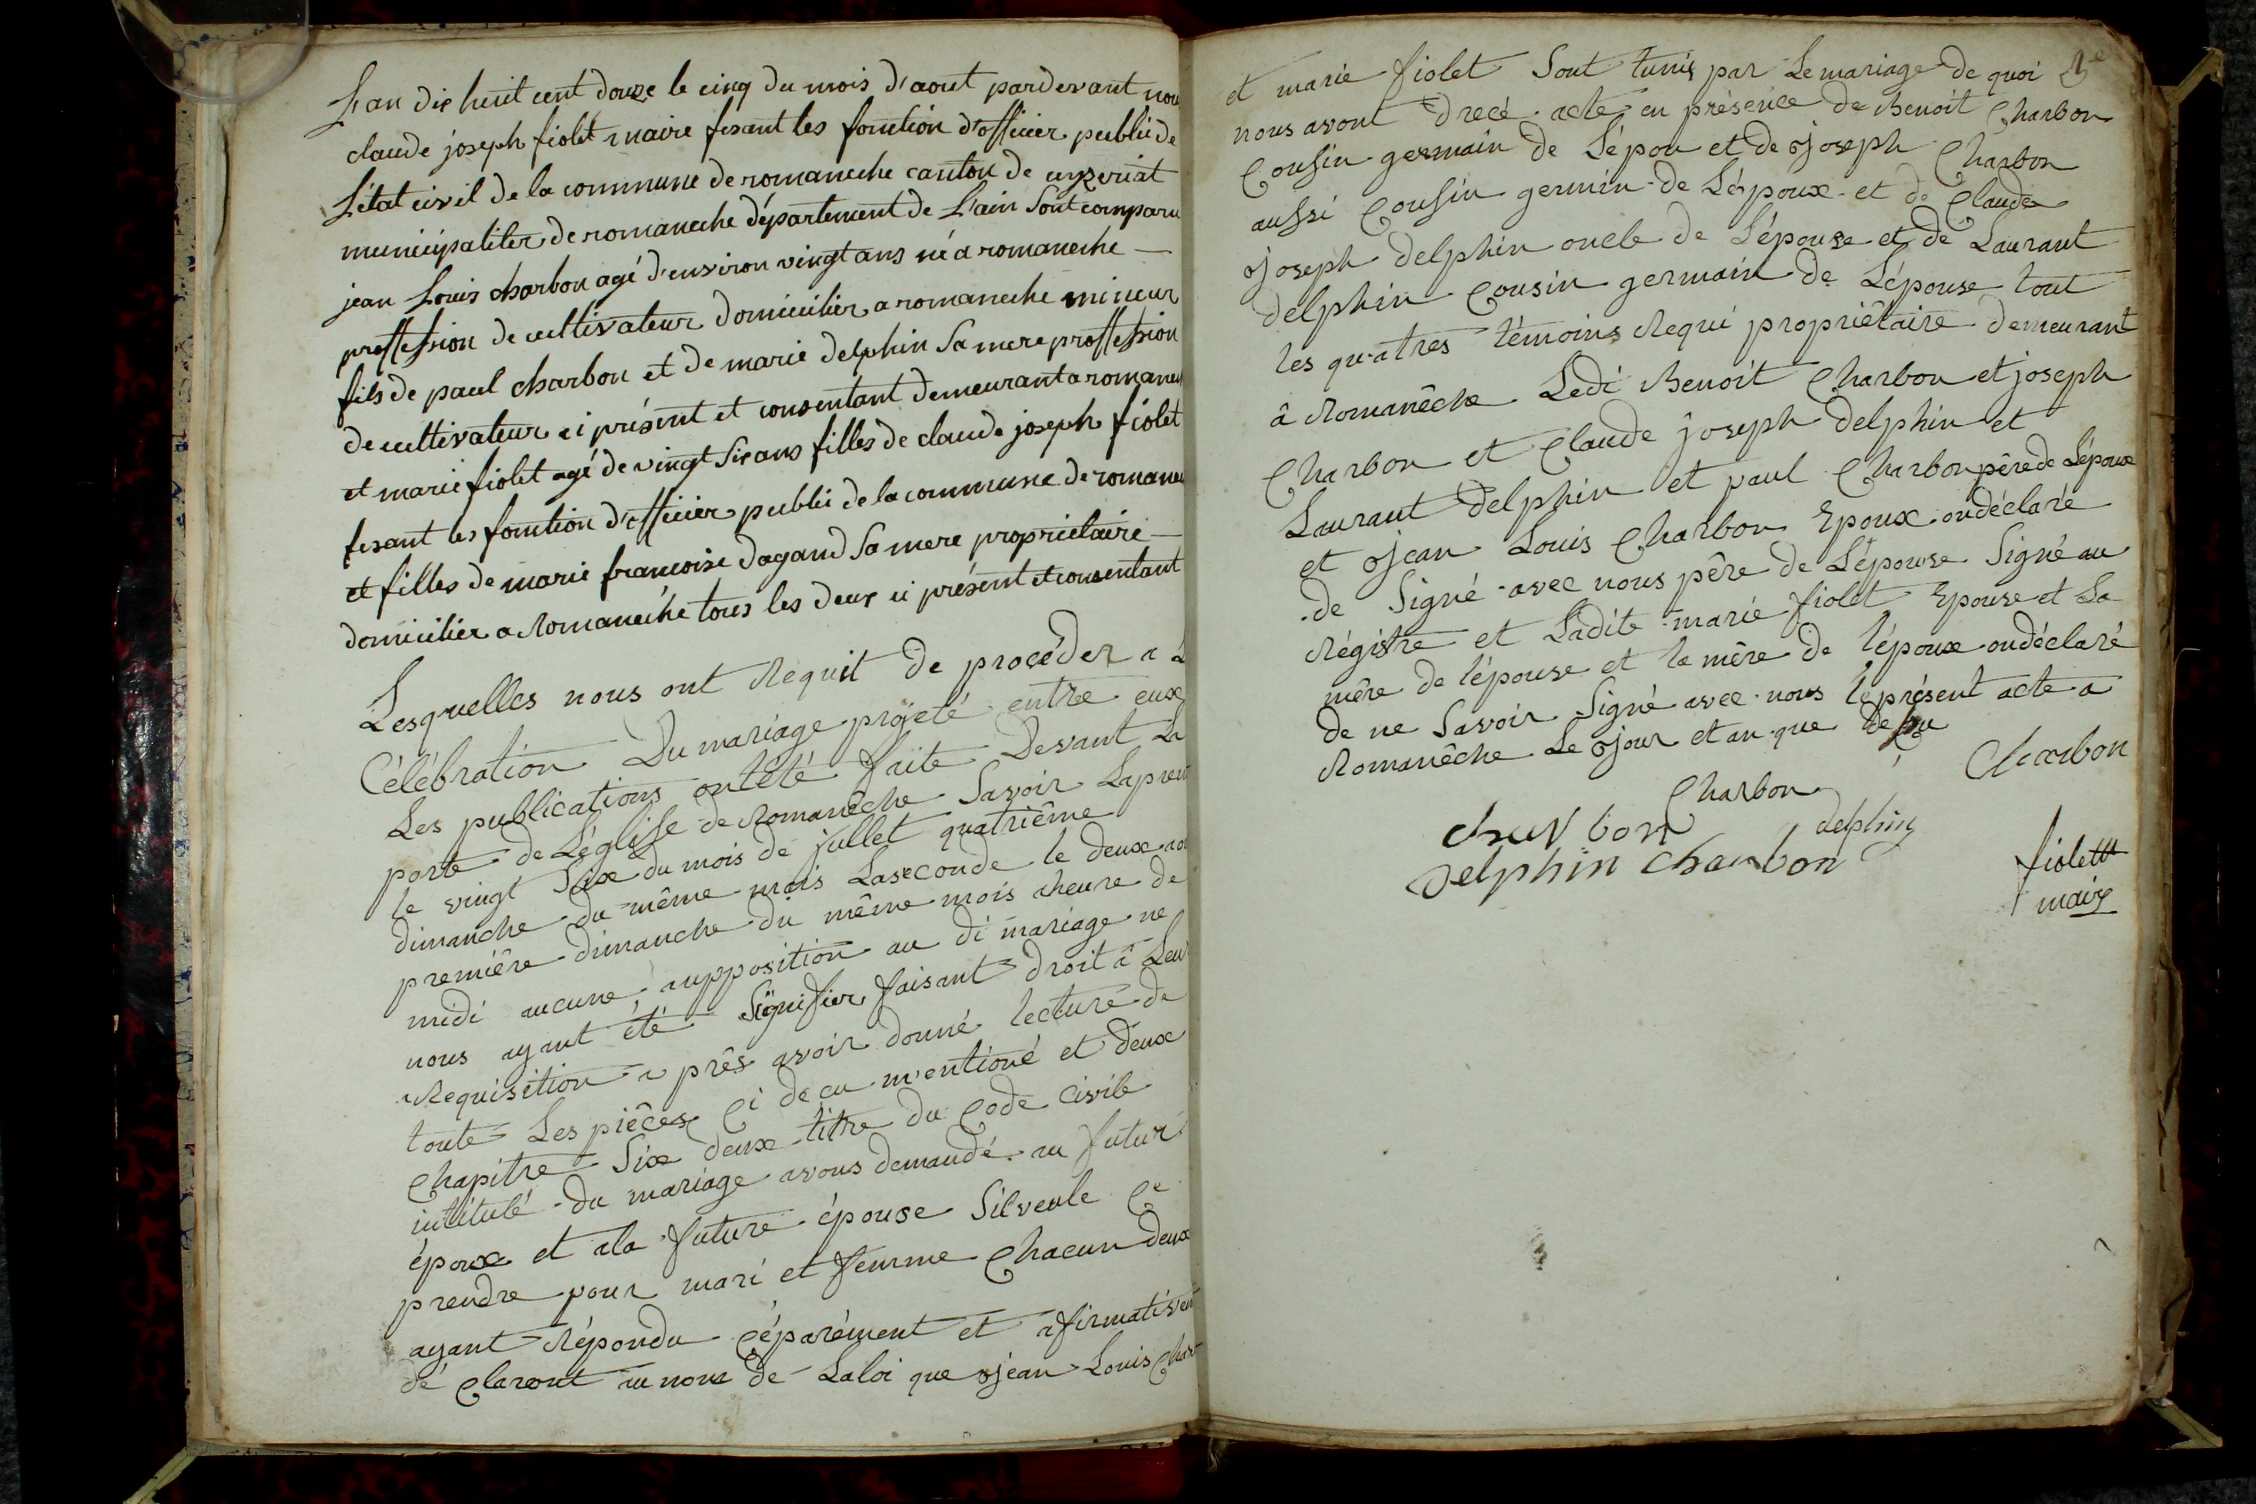 L'an dix huit cent douze le cinq du mois d'aout pardevant nou
claude joseph fiolet maire fesant les fonution d'officier public de
L'état civil de la commune de romaneche canton de ceyzeriat
municipaliter de romaneche département de L'ain Sont comparu
jean Louis charbon agé d'environ vingt ans né a romaneche
proffession de cultivateur domicilier a romaneche mineur
fils de paul charbon et de marie delphin Sa mere proffession
de cultivateur ci présent et consentant demeurant a romanec
et marie fiolet agé de vingt Six ans filles de claude joseph fiolet
fesant les fonution d'officier public de la commune de romanec
et filles de marie francoise dagand Sa mere proprietaire
domicilier a Romaneche tous les deux ci présent et consentant
Lesquelles nous ont Requit de procéder a L
Célébration Du mariage projeté entre eux
Les publications ont été faite Devant La
porte de L'églisse de Romanêche Savoir Laprem
le vingt Six du mois de jullet quatriême
dimanche du même mois Laseconde le deux aou
premiêre dimanche du même mois aheure de
midi aucune aupposition au di mariage ne
nous ayant été Signifier faisant droit â Leur
Requisition a près avoir donné lecture de
toute Les piêces Ci decu mentioné et deux
Chapitre Six deux titre du Code Civile
intitulé du mariage avous demandé au futur
époux et ala future épouse Silveule Ce
prendre pour mari et femme Chacun deux
ayant Répondu Céparément et afirmativem
dé Claront au nom de Laloi que jean Louis Char
et marie fiolet Sont tunis par Le mariage de quoi
nous avont drecé acte en présence de Benoit Charbon
Cousin germain de L'épou et de joseph Charbon
aussi Cousin germin de L'époux et de Claude
joseph delphin oncle de L'épouse et de Laurant
delphin Cousin germain de L'épouse tout
les quatres témoins Requi propriêtaire demeurant
â Romanêche Ledi Benoit Charbon et joseph
Charbon et Claude joseph delphin et
Laurant delphin et paul Charbon pêre de L'époux
et jean Louis Charbon Epoux ondéclaré
de Signé avec nous pêre de L'épouse Signé au
Régistre et Ladite marie fiolet Epouse et La
mêre de l'épouse et la mêre de l'époux ondéclaré
de ne Savoir Signé avec nous le présent acte a
Romanêche Le jour et an que deçu
Charbon
Charbon
charbon
delphin
delphin charbon
fiolet
maire